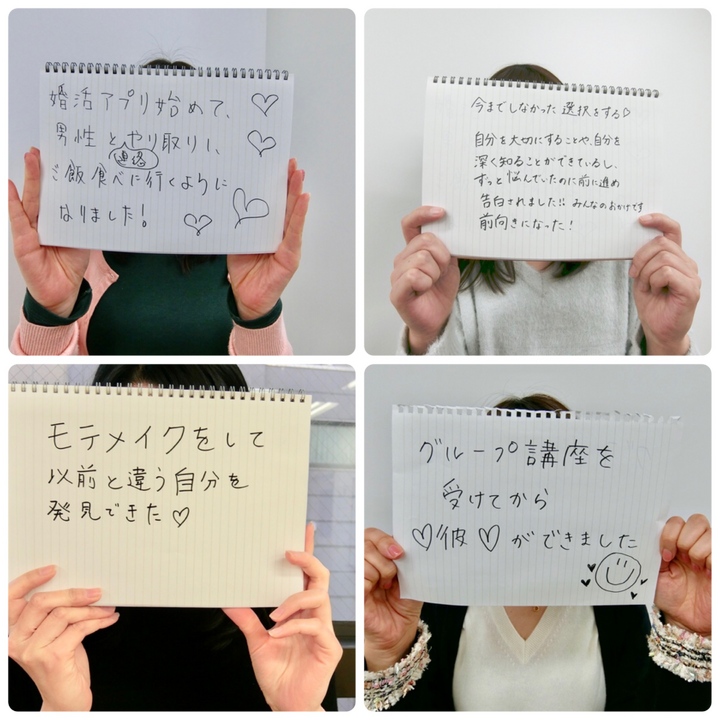 婚活アプリ始めて、♡
男性とやり取りし、♡
連絡
ご飯食べに行くように
なりました! ♡ ♡
今までしなかった選択をする♡
自分を大切にすることや、自分を
深く知ることができているし、
ずっと悩んでいたのに前に進め
告白されました!! みんなのおかげです
前向きになった!
モテメイクをして
以前と違う自分を
発見できた♡
グループ講座を
受けてから
♡彼♡ができました